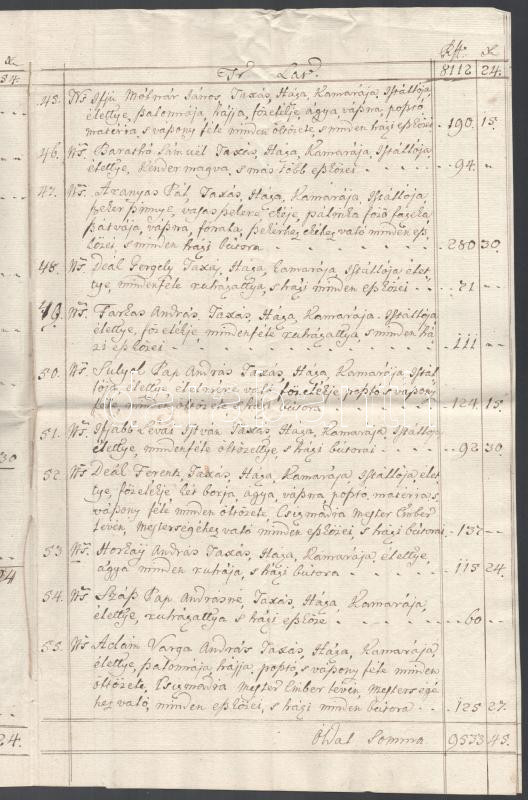 Rft. X
Tr. Lat. 8112 24.
45. Ns Ifjú Mólnár János Taxás, Háza, Kamarája, Istállója
élettye, szalonnája, hájja, főzelékje ágya vászna, posztó
matéria, s vászony féle minden őltözete, s minden házi eszközei 190. 15.
46. Ns. Barathó Sámuel Taxás, Háza, Kamarája, Istállója,
élettye, kender magva, s más több eszközei 94. --
47. Ns. Aranyas Pál, Taxás, Háza, Kamarája, Istállója,
vászna, fonala, való minden esz
közei s minden házi bútora 280 30.
48. Ns. Deál Gergely Taxás, Háza, Camarája, Istállója, élet
tye, mindenféle ruházattya, s házi minden eszközei 71 --
49. Ns. Farkas András, Taxás, Háza, Kamarája, Istállója
élettye, főzelékje mindenféle ruházattya, s minden há
zi eszközei 111 --
50. Ns. Sulyol Pap András Taxás, Háza, Kamarája, Istál
lója, élettye, élelmére való főzelékje posztó s vászony
féle minden őltözete s házi bútora 124. 15.
51. Ns. Ifjabb Lévai István Taxás, Háza, Kamarája, Istállója
élettye, mindenféle őltözettye, s házi bútorai 92 30.
52. Ns. Deál Ferentz Taxás, Háza, Kamarája, Istállója, élet
tye, főzelékje két borja, ágya, vászna, posztó, matéria, s
vászony féle minden őltözete Csizmadia Mester Ember
lévén, Mesterségéhez való minden eszközei s házi bútorai 137 --
53 Ns. Horkay András Taxás, Háza, Kamarája, élettye,
ágya minden ruhája, s házi bútora 115 24.
54. Ns. Szász Pap Andrásné, Taxás, Háza, Kamarája,
élettye, ruházattya s házi eszköze 60 --
55. Ns Ádám Varga András Taxás, Háza, Kamarája,
élettye, szalonnája, hájja, posztó, s vászony féle minden
őltözete, Csizmadia Mester Ember lévén, Mesterségé
hez való, minden eszközei, s házi minden bútora 125 27.
Óldal Somma 9533 45.